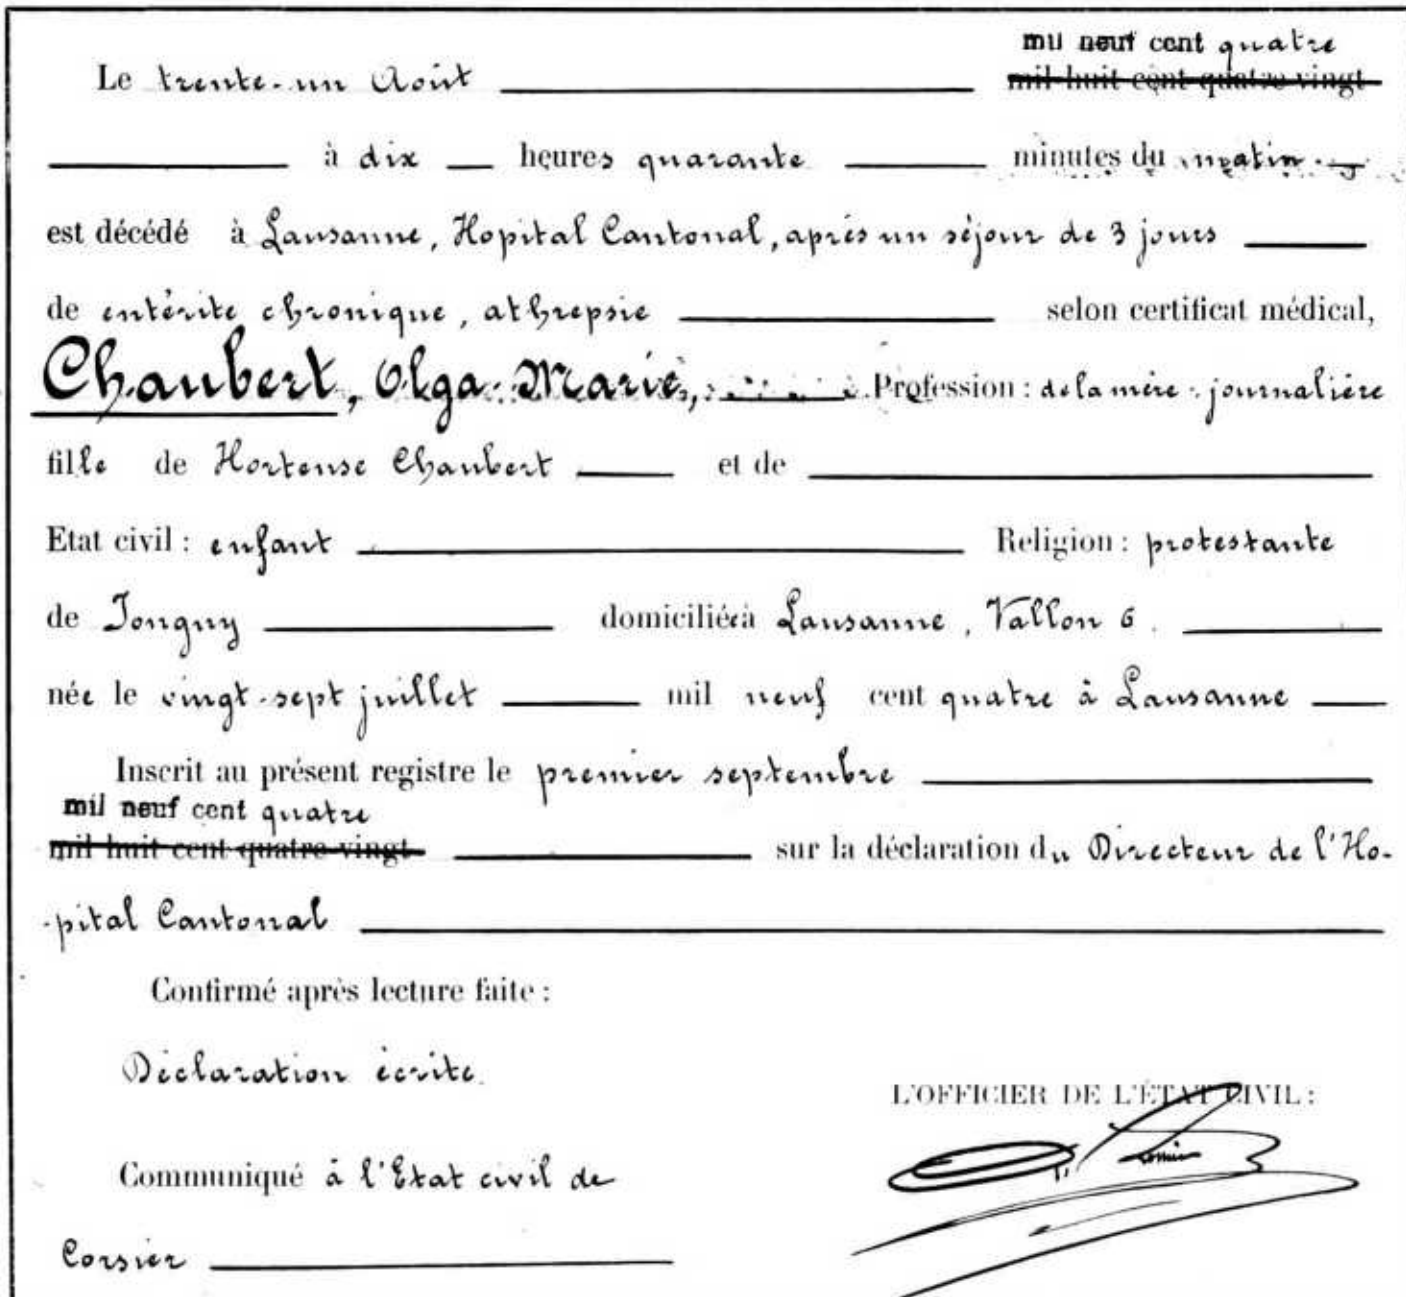 mil neuf cent quatre
Le trente-un Août mil huit cent quatre-vingt
à dix heures quarante minutes du matin
est décédé à Lausanne, Hopital Cantonal, après un séjour de 3 jours
de entérite chronique, athrepsie selon certificat médical,
Chaubert, Olga-Marie, Profession : de la mère : journalière
fille de Hortense Chaubert et de
Etat civil : enfant Religion : protestante
de Jongny domiciliée à Lausanne, Vallon 6.
née le vingt-sept juillet mil neuf cent quatre à Lausanne
Inscrit au présent registre le premier septembre
mil neuf cent quatre
mil huit cent quatre-vingt sur la déclaration du Directeur de l'Ho-
-pital Cantonal
Confirmé après lecture faite :
Déclaration écrite.
L'OFFICIER DE L'ÉTAT CIVIL :
Communiqué à l'Etat civil de
Corsier